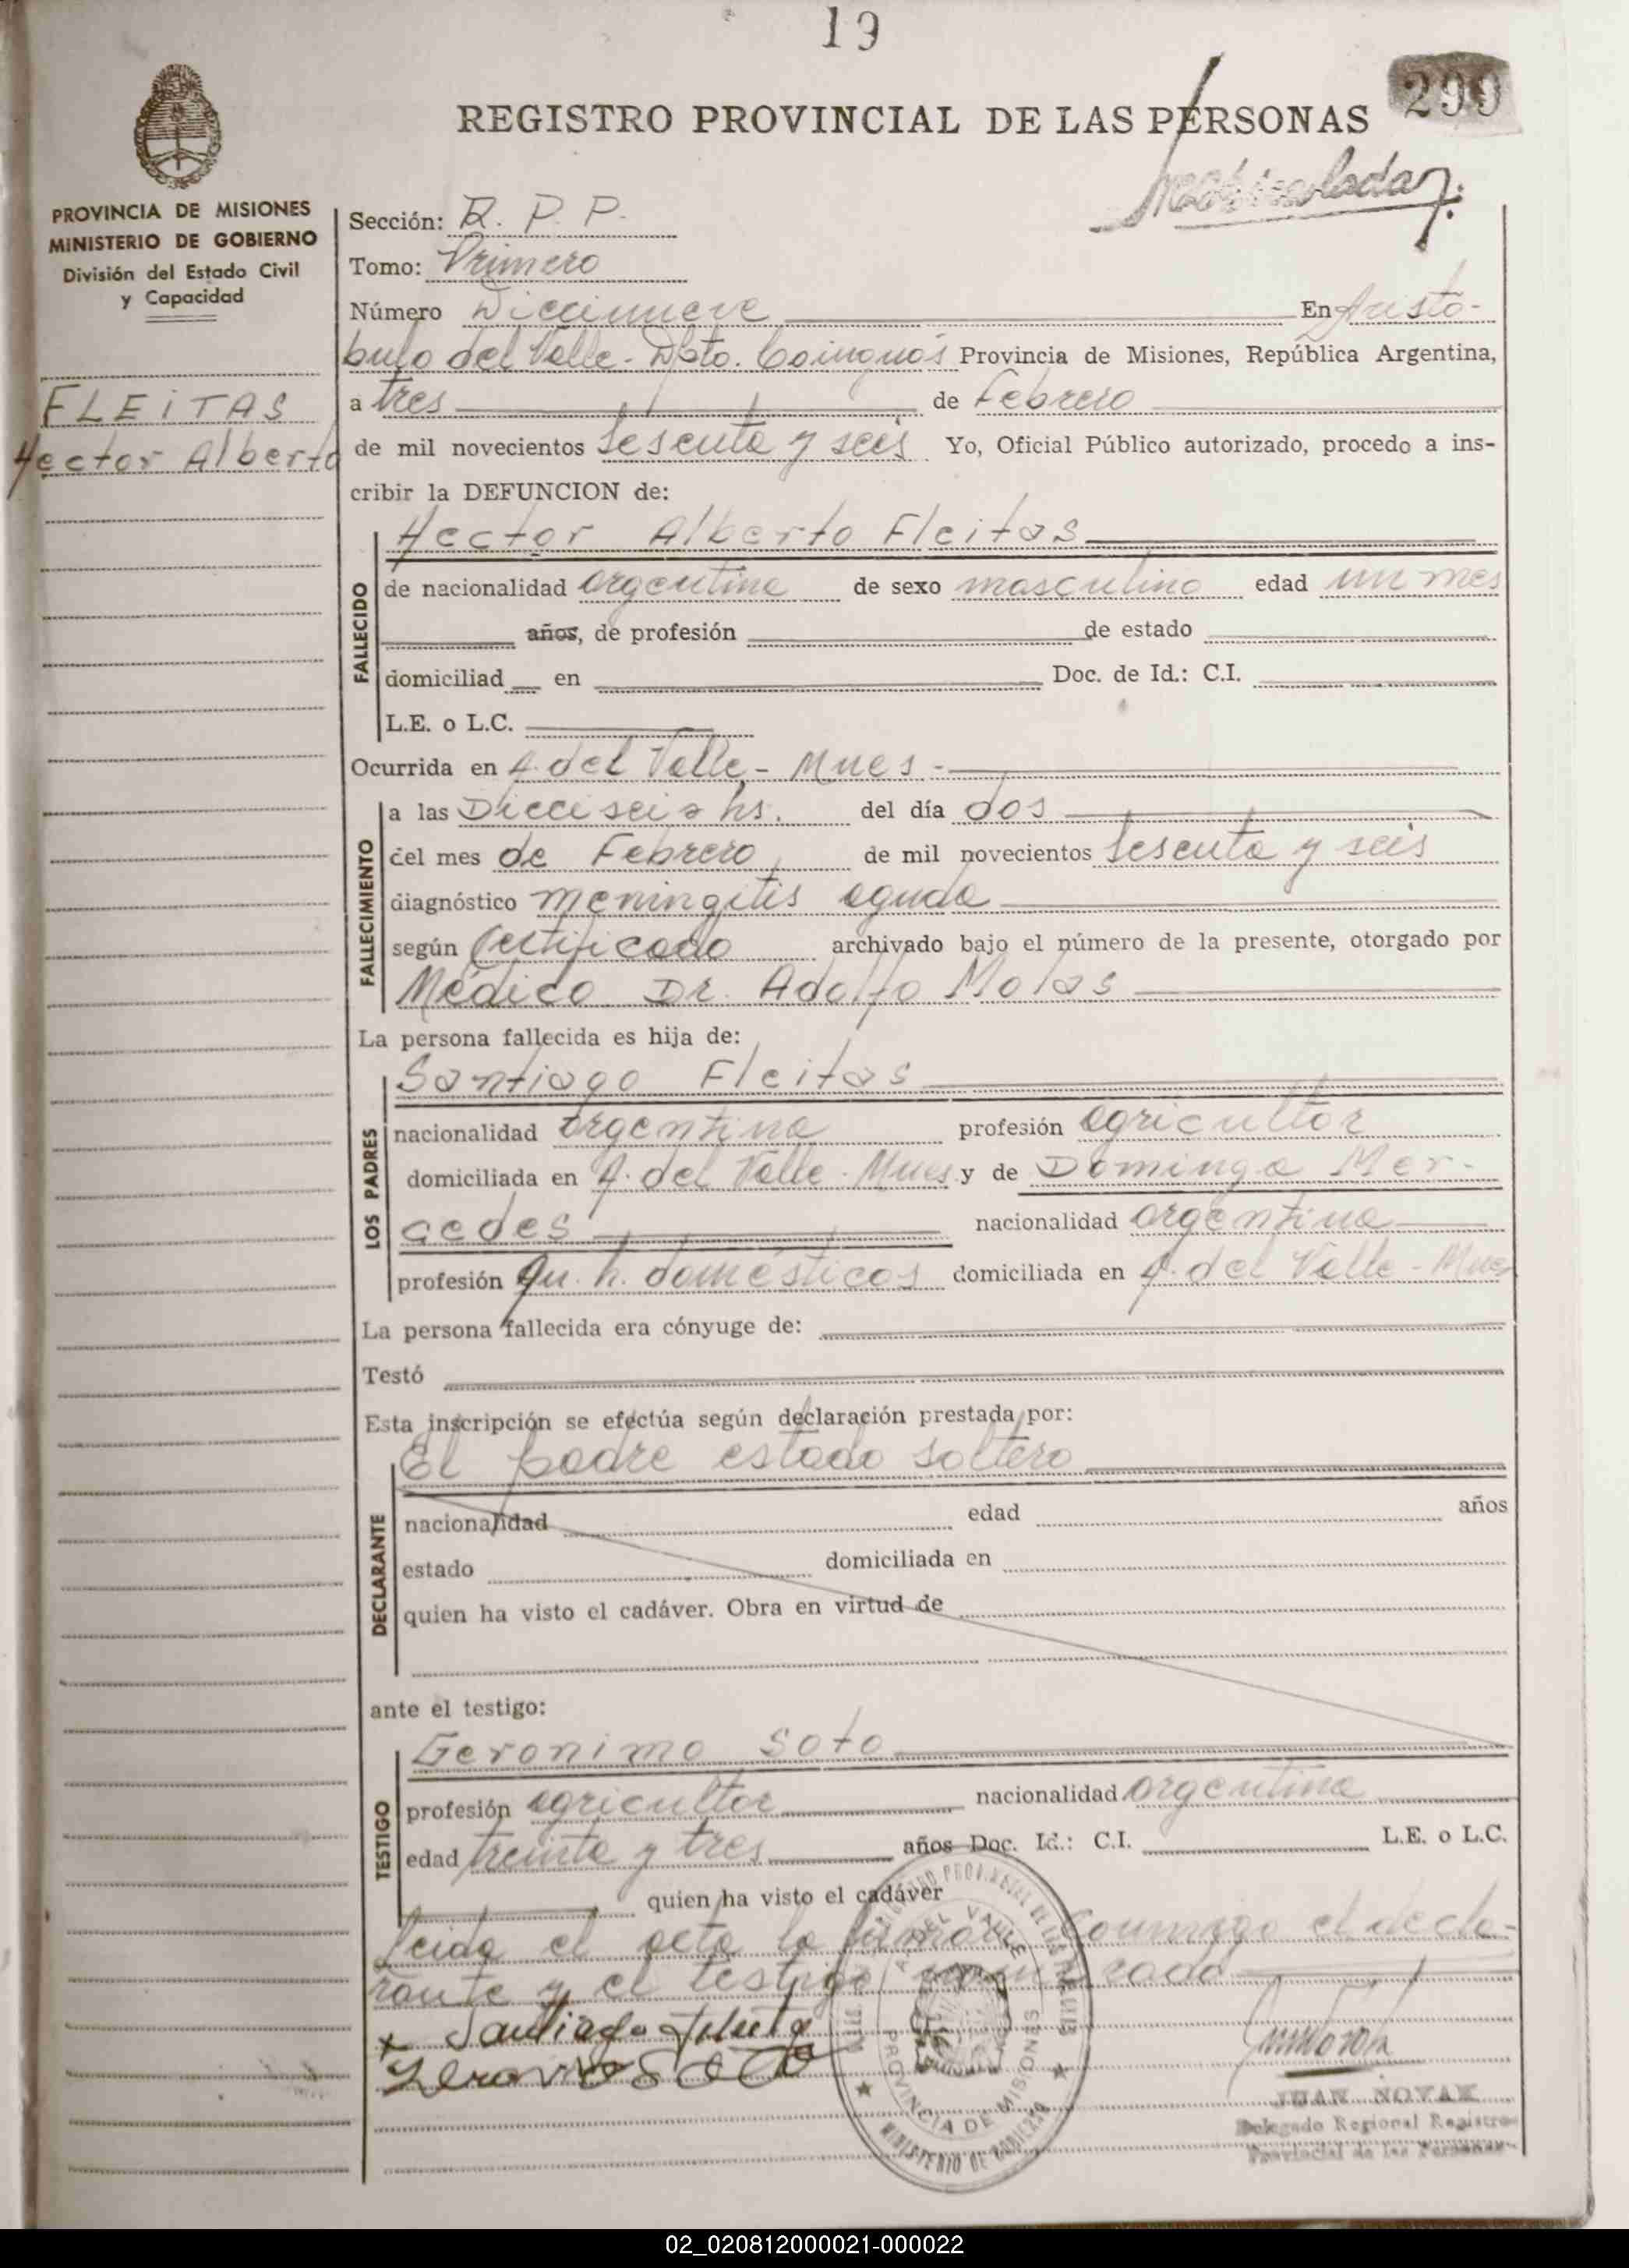 19
299
REGISTRO PROVINCIAL DE LAS PERSONAS
Matriculado
PROVINCIA DE MISIONES
MINISTERIO DE GOBIERNO
División del Estado Civil
y Capacidad
FLEiTAS
Hector Alberto
Sección: R. P. P.
Tomo: Primero
Número Diecinueve En Aristó-
bulo del Valle - Dpto. Cainguás Provincia de Misiones, República Argentina,
a tres de Febrero
de mil novecientos sesenta y seis Yo, Oficial Público autorizado, procedo a ins-
cribir la DEFUNCION de:
FALLECIDO
Hector Alberto Fleitas
de nacionalidad argentina de sexo masculino edad un mes
años, de profesión de estado
domiciliad en Doc. de Id.: C.I.
L.E. o L.C.
Ocurrida en A. del Valle - Mnes -
FALLECIMIENTO
a las Dieciseis hs. del día dos
del mes de Febrero de mil novecientos sesenta y seis
diagnóstico meningitis aguda
según Certificado archivado bajo el número de la presente, otorgado por
Médico Dr. Adolfo Molas
La persona fallecida es hija de:
LOS PADRES
Santiago Fleitas
nacionalidad argentina profesión agricultor
domiciliada en A. del Valle - Mnes y de Dominga Mer-
cedes nacionalidad argentina
profesión qu. h. domésticos domiciliada en A. del Valle - Mnes
La persona fallecida era cónyuge de:
Testó
Esta inscripción se efectúa según declaración prestada por:
DECLARANTE
El padre estado soltero
nacionalidad edad años
estado domiciliada en
quien ha visto el cadáver. Obra en virtud de
ante el testigo:
TESTIGO
Geronimo Soto
profesión agricultor nacionalidad argentina
edad treinta y tres años Doc. Id.: C.I. L.E. o L.C.
quien ha visto el cadáver
Leida el acta la firman conmigo el decla-
rante y el testigo
Santiago
Soto
A. DEL VALLE
PROVINCIA DE MISIONES
MINISTERIO DE GOBIERNO
JUAN NOVAK
Delegado Regional Registro
Provincial de las Personas
02_020812000021-000022